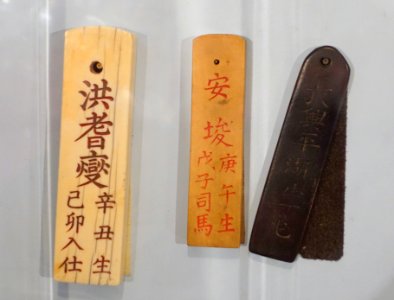 洪耆爕
辛丑生
己卯入仕
安埈
庚午生
戊子司馬